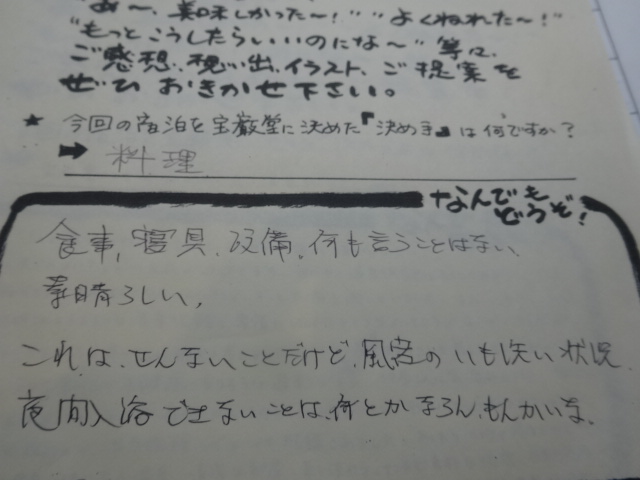 "あ〜、美味しかった〜!""よくねれた〜!"
"もっとこうしたらいいのにな〜"等々、
ご感想、想い出、イラスト、ご提案を
ぜひ おきかせ下さい。
★ 今回の宿泊を宝巌堂に決めた『決め手』は何ですか?
➡ 料理
なんでも
どうぞ!
食事、寝具、設備。何も言うことはない、
素晴ろしい、
これは、せんないことだけど、風呂の いも洗い状況
夜間入浴できないことは、何とかならん、もんかいな。